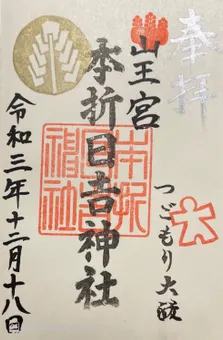 奉拝
山王宮
本折日吉神社
つごもり大祓
令和三年十二月十八日
本折
日吉
神社